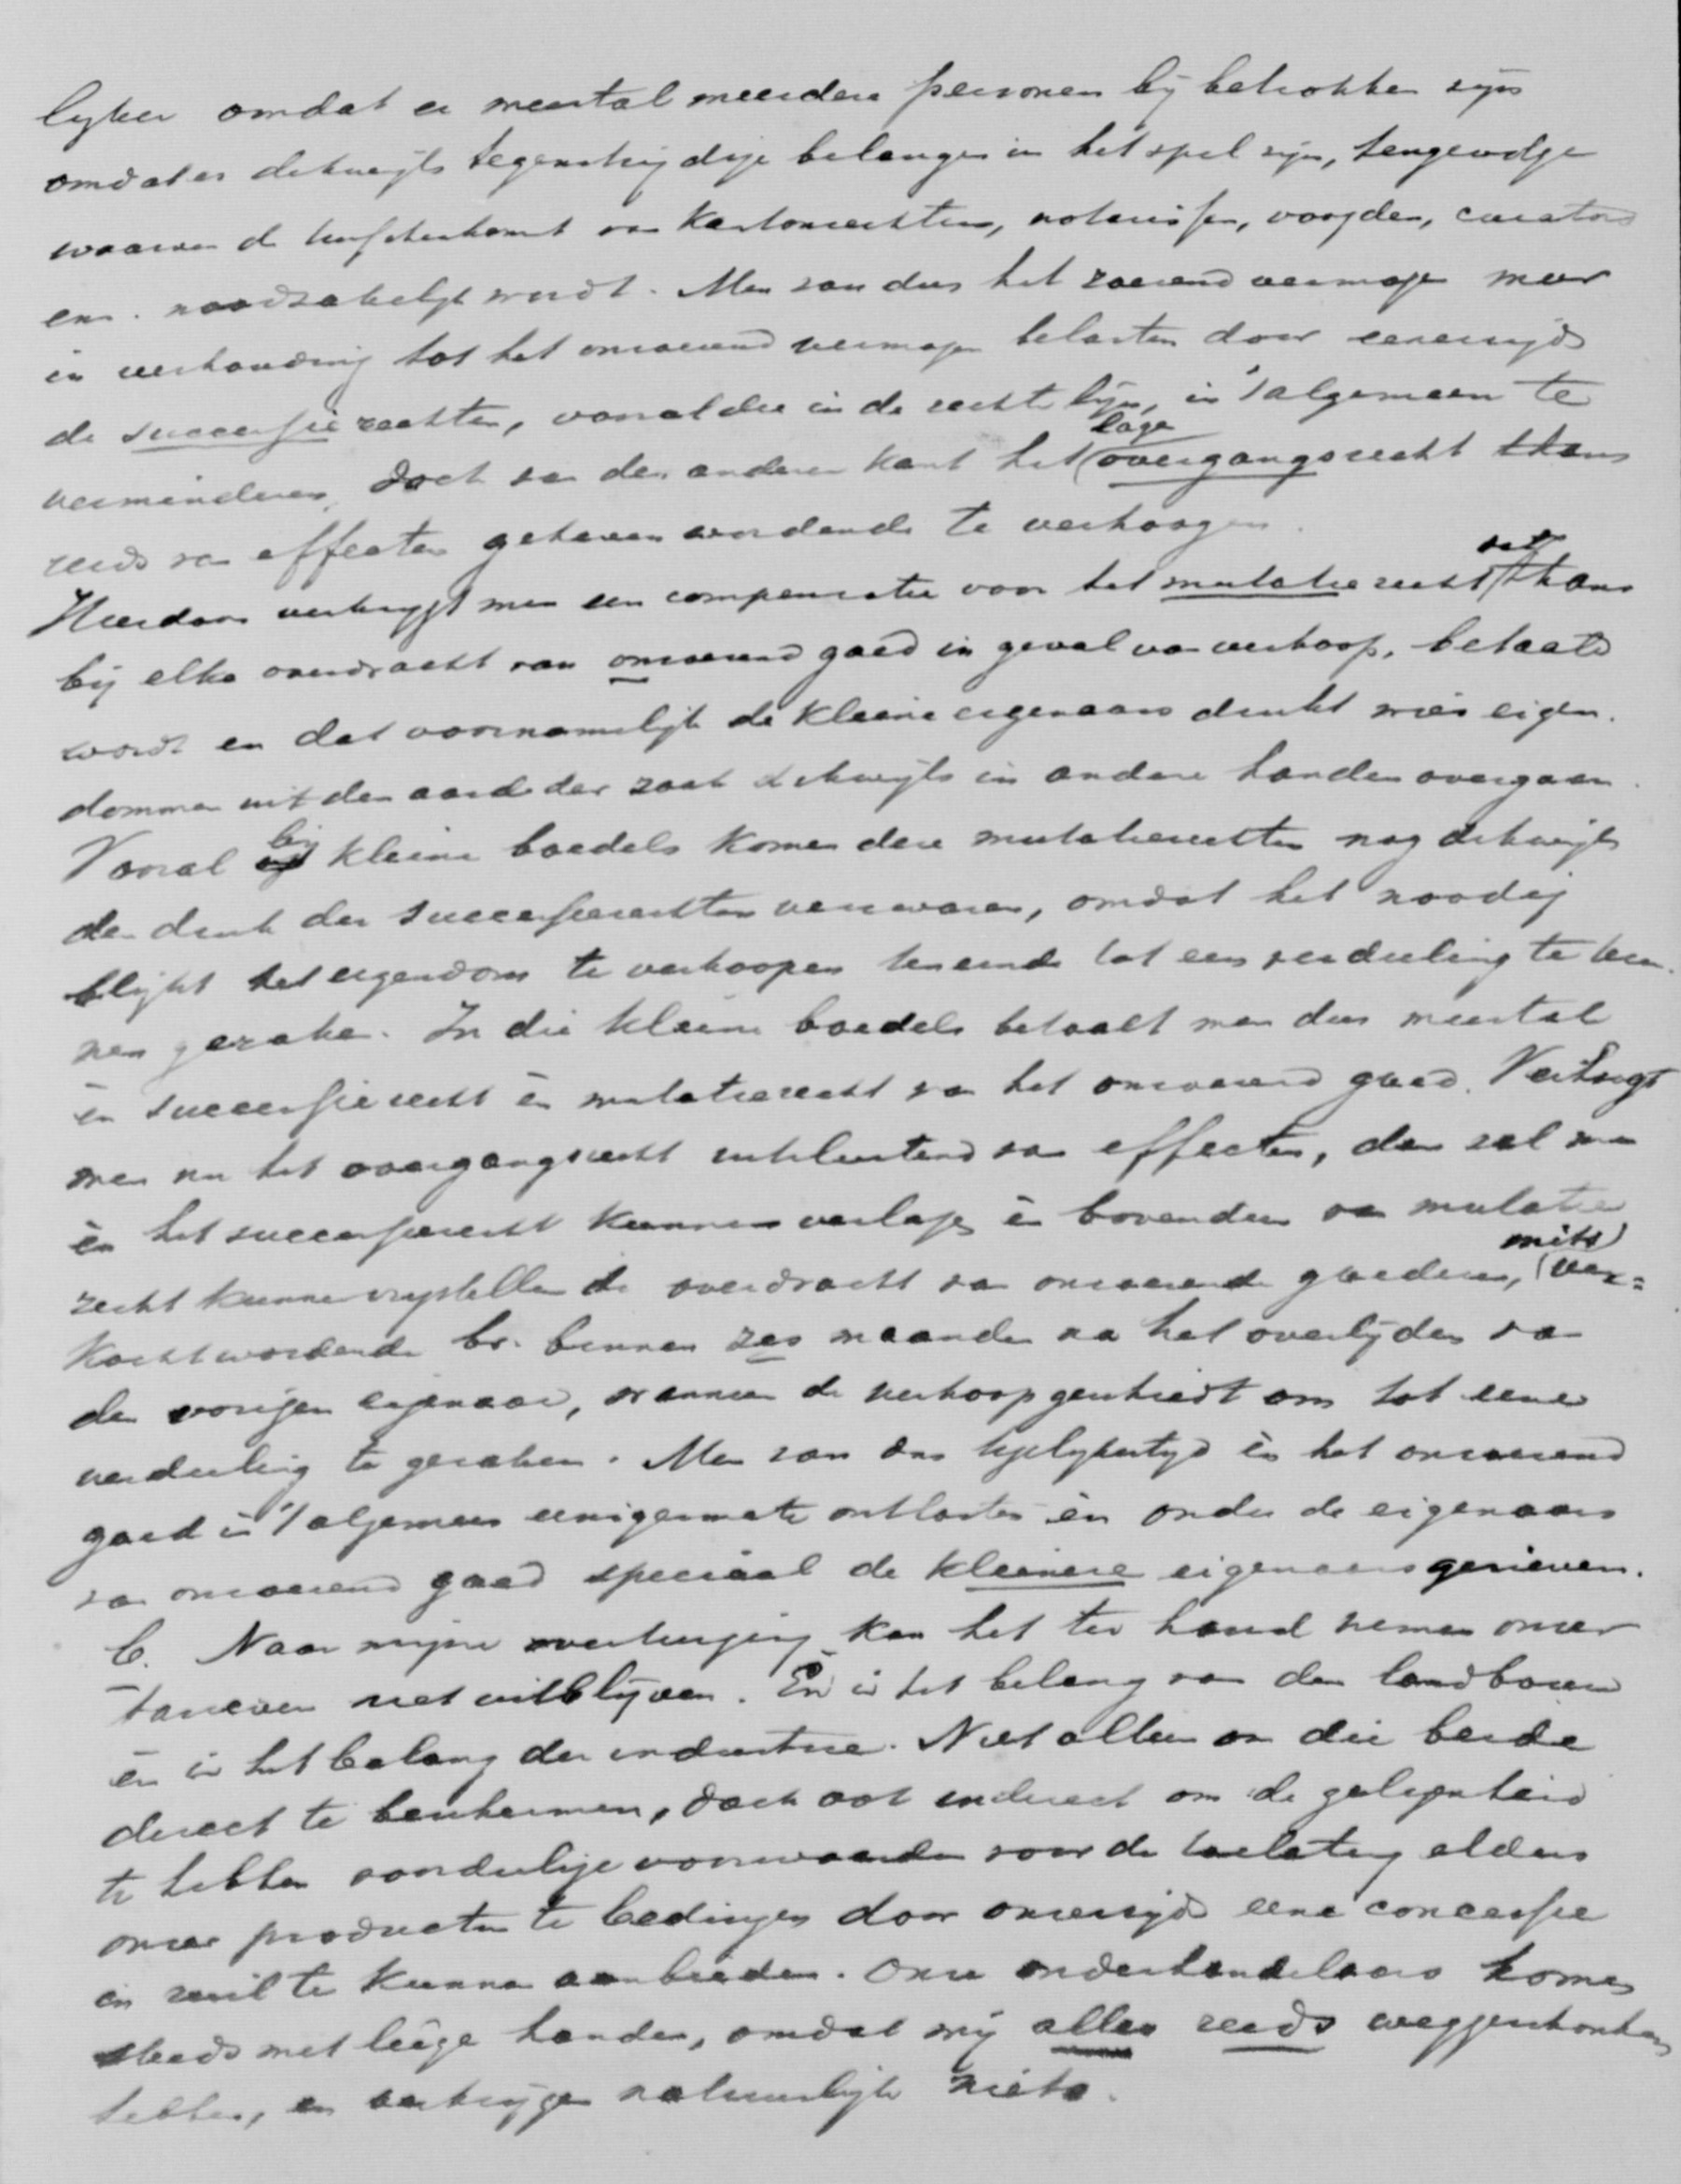 lyker omdat er meestal meerdere personen bij betrokken zijn
omdat er dikwijls tegenstrijdige belangen in het spel zijn, tengevolge
waarvan de tusschenkomst van kantonrechters, notarissen, voogden, curators
enz. noodzakelijk wordt. Men zou dus het roerend vermogen meer
in verhouding tot het onroerend vermogen belasten door eenerzijds
de successierechten, vooral die in de rechte lijn, in 't algemeen te
verminderen, doch van den anderen kant het lage overgangsrecht thans
reeds van effecten geheven wordende te verhoogen.
Hierdoor verkrijgt men een compensatie voor het mutatierecht dat thans
bij elke overdracht van onroerend goed in geval van verkoop, betaald
wordt en dat voornamelijk de kleine eigenaars drukt wier eigen-
dommen uit den aard der zaak dikwijls in andere handen overgaan.
Vooral bij kleine boedels komen deze mutatierechten nog dikwijls
den druk der successierechten verzwaren, omdat het noodig
blijkt het eigendom te verkoopen teneinde tot een verdeeling te kun-
nen geraken. In die kleine boedels betaalt men dus meestal
èn successierecht èn mutatierecht van het onroerend goed. Verhoogt
men nu het overgangsrecht uitsluitend van effecten, dan zal men
èn het successierecht kunnen verlagen èn bovendien van mutatie
recht kunnen vrijstellen de overdracht van onroerende goederen, mits ver-
kocht wordende bv. binnen zes maanden na het overlijden van
den vorigen eigenaar, wanneer de verkoop geschiedt om tot eene
verdeeling te geraken. Men zou dus tegelijkertijd èn het onroerend
goed in 't algemeen eenigermate ontlasten èn onder de eigenaars
van onroerend goed speciaal de kleinere eigenaars gerieven.
C. Naar mijne overtuiging kan het ter hand nemen onzer
tarieven niet uitblijven. Èn in het belang van den landbouw
èn in het belang der industrie. Niet alleen om die beide
direct te beschermen, doch ook indirect om de gelegenheid
te hebben voordeelige voorwaarden voor de toelating elders
onzer producten te bedingen door onzerzijds eene concessie
in ruil te kunnen aanbieden. Onze onderhandelaars komen
steeds met leêge handen, omdat wij alles reeds weggeschonken
hebben, en verkrijgen natuurlijk niets.